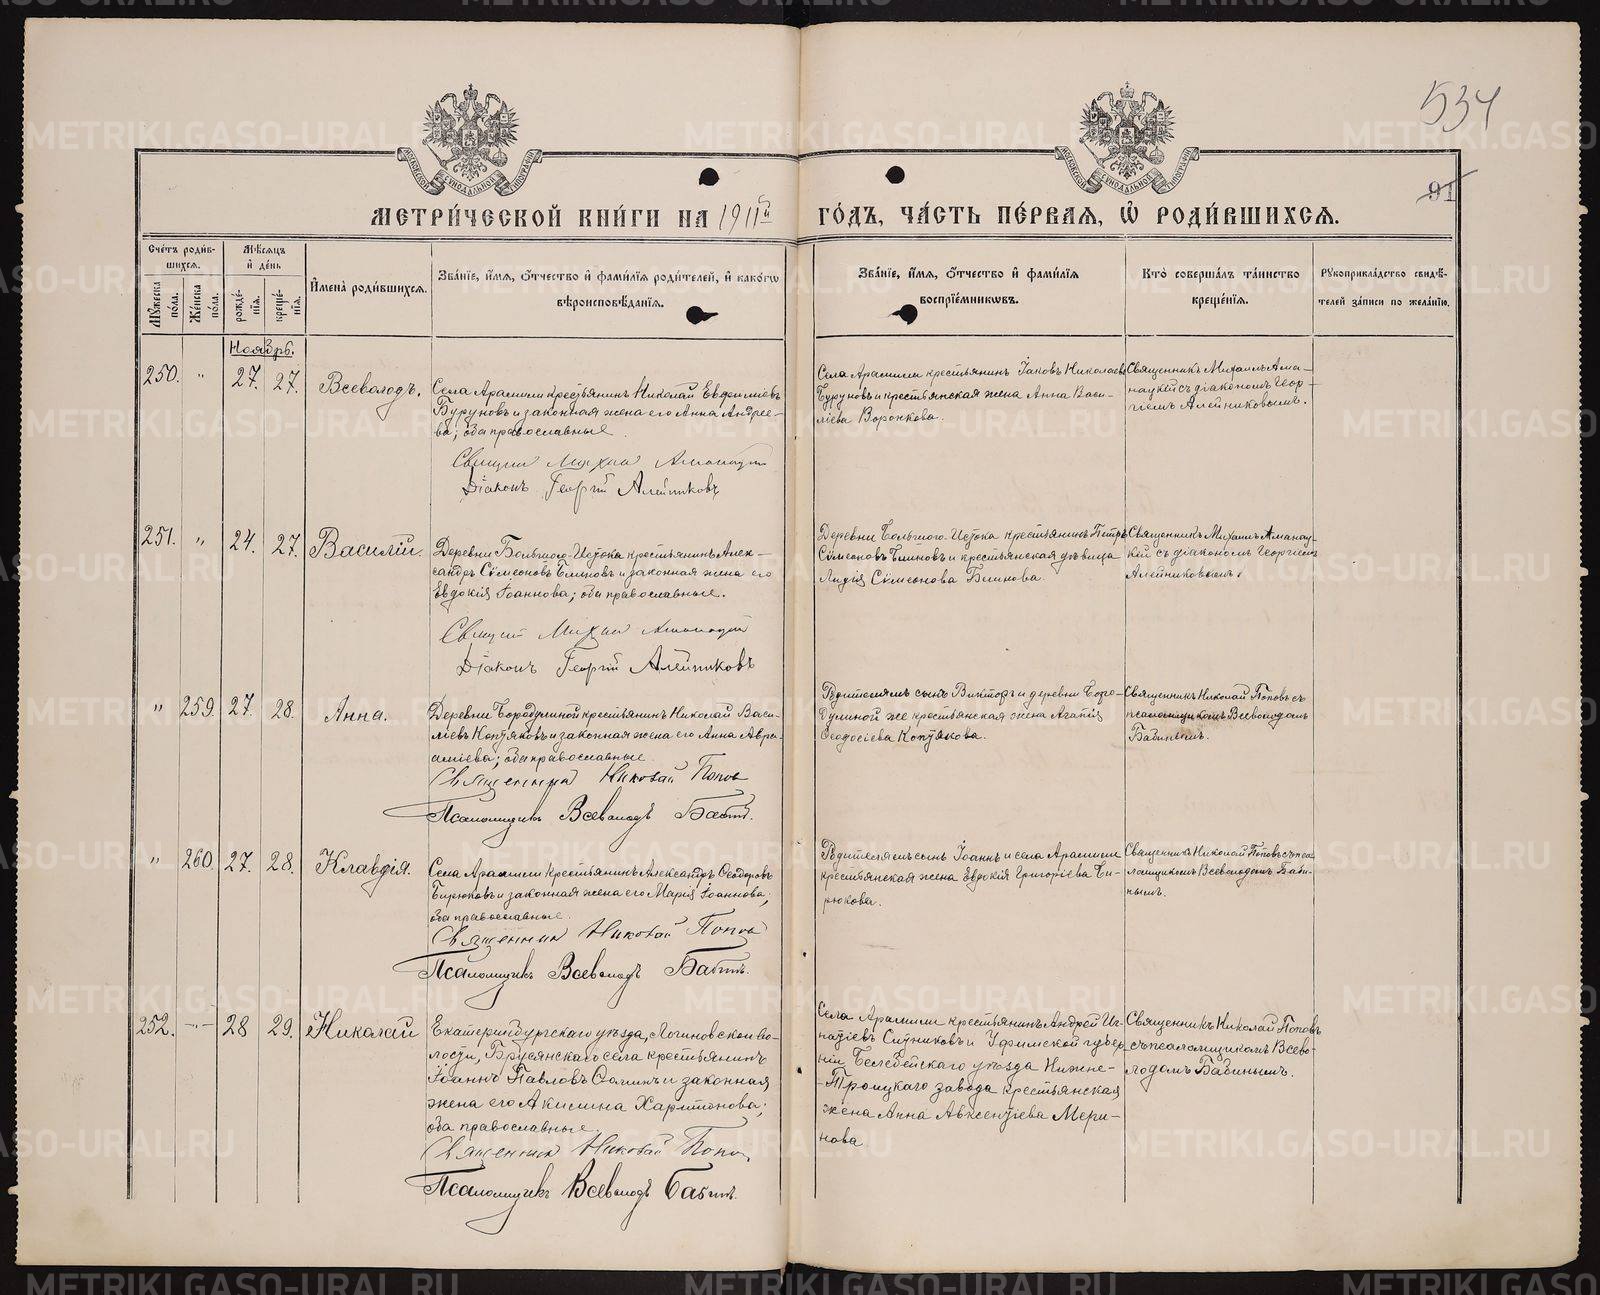 534
91
МОСКОВСКОЙ СУНОДАЛЬНОЙ ТИПОГРАФІИ
МОСКОВСКОЙ СУНОДАЛЬНОЙ ТИПОГРАФІИ
МЕТРИ́ЧЕСКОЙ КНИ́ГИ НА 1911й ГО́ДЪ, ЧА́СТЬ ПЕ́РВАЯ, Ѡ҆ РОДИ́ВШИХСЯ.
Сче́тъ роди́в-
шихся.
Мꙋ́жеска по́ла.
Же́нска по́ла.
Мѣ́сяцъ
и҆ де́нь
рожде́-
нїя.
креще́-
нїя.
И҆мена̀ роди́вшихся.
Зва́нїе, и҆́мя, ѻ҆́тчество и҆ фамилїя роди́телей, и҆ како́гѡ
вѣроисповѣ́данїя.
Зва́нїе, и҆́мя, ѻ҆́тчество и҆ фамилїя
воспрїе́мникѡвъ.
Кто̀ соверша́лъ та́инство
креще́нїя.
Рꙋкоприкла́дство свидѣ́-
телей за́писи по жела́нїю.
Ноябрь.
250. " 27. 27. Всеволодъ.
Села Арамили крестьянинъ Николай Евфиміевъ
Буруновъ и законная жена его Анна Андрее-
ва; оба православные.
Михаил
Діаконъ Георгій Алейниковъ
Села Арамили крестьянинъ Іаковъ Николаевъ
Буруновъ и крестьянская жена Анна Васи-
ліева Воронкова.
Священникъ Михаилъ Ама-
націй съ діакономъ Геор-
гіемъ Алейниковымъ.
251. " 24. 27. Василій.
Деревни Большого-Истока крестьянинъ Алек-
сандръ Сѵмеоновъ Блиновъ и законная жена его
Евдокія Іоаннова; оба православные.
Михаил
Діаконъ Георгій Алейниковъ
Деревни Большого-Истока крестьянинъ Петръ
Сѵмеоновъ Блиновъ и крестьянская дѣвица
Лидія Сѵмеонова Блинова.
Священникъ Михаилъ Аманац-
кій съ діакономъ Георгіемъ
Алейниковымъ.
" 259. 27. 28. Анна.
Деревни Бородулиной крестьянинъ Николай Васи-
ліевъ Коптяковъ и законная жена его Анна Авра-
аміева; оба православные.
Священник Николай Попов
Псаломщикъ Всеволодъ Бабинъ.
Родителямъ сынъ Викторъ и деревни Боро-
дулиной же крестьянская жена Агапія
Ѳеодосіева Коптякова.
Священникъ Николай Поповъ съ
псаломщикомъ Всеволодомъ
Бабинымъ.
" 260. 27. 28. Клавдія.
Села Арамили крестьянинъ Александръ Ѳеодоровъ
Бирюковъ и законная жена его Марія Іоаннова;
оба православные.
Священник Николай Попов
Псаломщикъ Всеволодъ Бабинъ.
Родителямъ сынъ Іоаннъ и села Арамили
крестьянская жена Евдокія Григоріева Би-
рюкова.
Священникъ Николай Поповъ съ пса-
ломщикомъ Всеволодомъ Баби-
нымъ.
252. -"- 28 29. Николай
Екатеринбургскаго уѣзда, Логиновской во-
лости, Брусянскаго села крестьянинъ
Іоаннъ Павловъ и законная
жена его Акилина Харитонова;
оба православные.
Священник Николай Попов
Псаломщикъ Всеволодъ Бабинъ.
Села Арамили крестьянинъ Андрей Иг-
натіевъ Ситниковъ и Уфимской губер-
ніи Белебейскаго уѣзда Нижне-
-Троицкаго завода крестьянская
жена Анна Авксентіева Мери-
нова
Священникъ Николай Поповъ
съ псаломщикомъ Всево-
лодомъ Бабинымъ.
METRIKI.GASO-URAL.RU